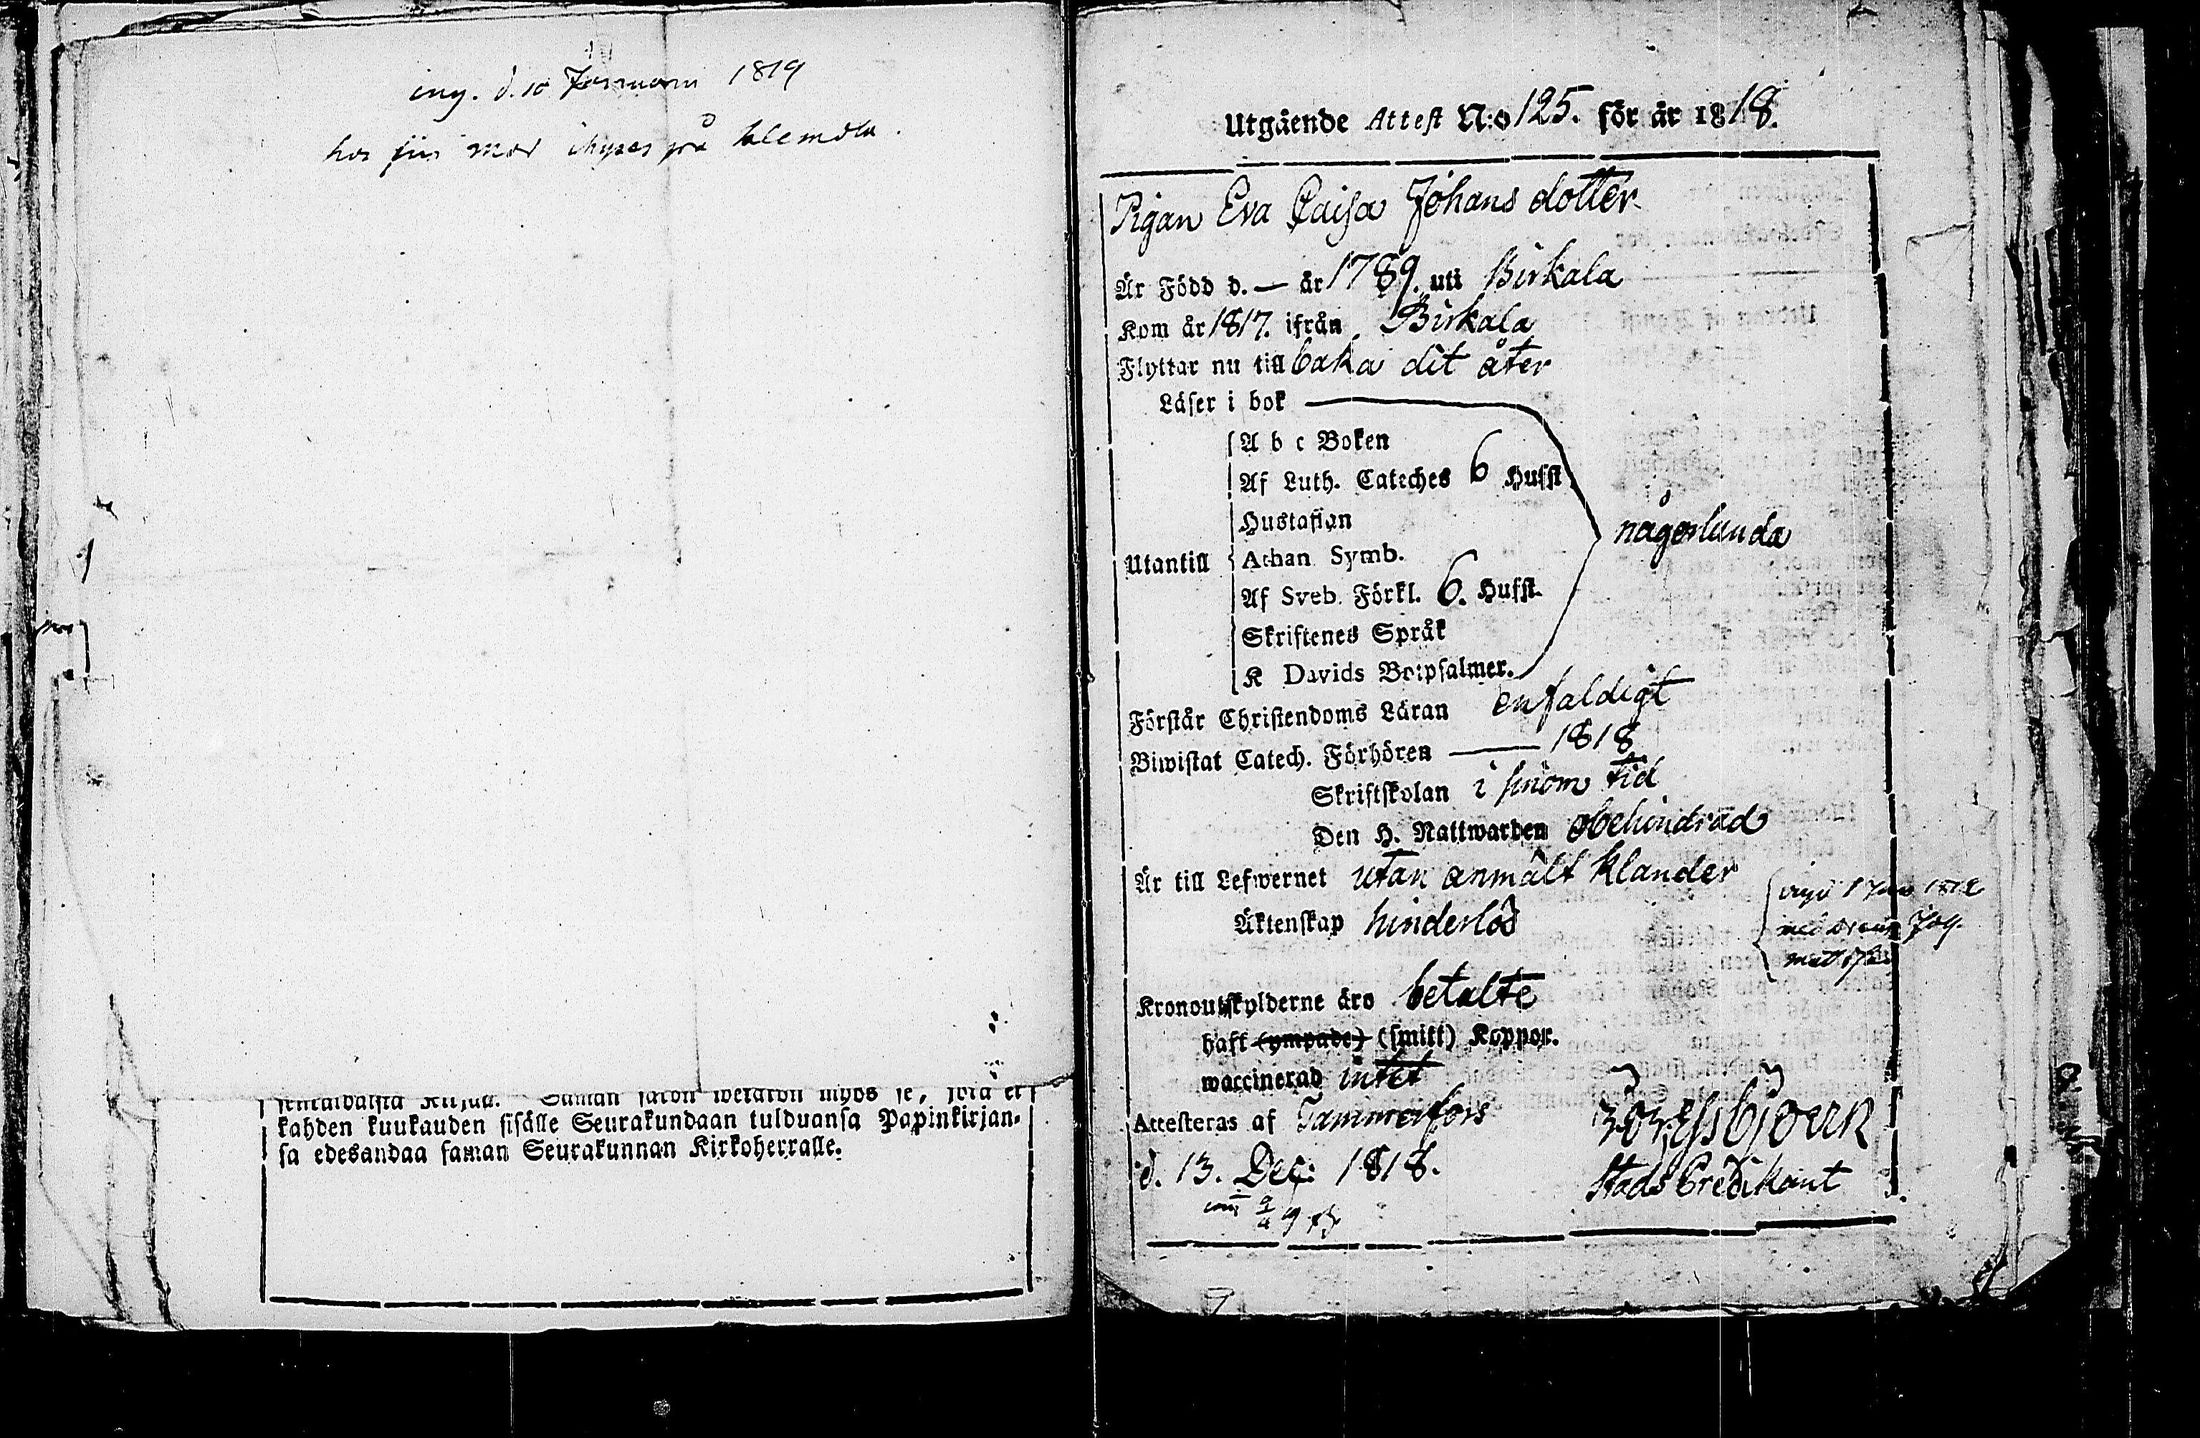 ing. d. 10 Januari 1819
hos sin mor på
sa edesandaa saman Seurakunnan Kirkoherralle.
kahden kuukauden sisälle Seurakundaan tulduansa Papinkirjan-
Utgående Attest N:o 125. för år 1818.
Pigan Eva Caisa Johans dotter
Är Född d. — år 1789. uti Birkala
Kom år 1817. ifrån Birkala
Flyttar nu till baka dit åter
Läser i bok
A b c Boken
Af Luth. Cateches 6 Hufst
Hustaflan
någorlunda
Utantill
Athan Symb.
Af Sveb. Förkl. 6. Hufst.
Skriftenes Språk
K Davids Botpsalmer.
Förstår Christendoms Läran enfaldigt
Biwistat Catech. Förhören — 1818
Skriftskolan i sinom tid
Den H. Nattwarden obehindrad
Är till Lefwernet utan anmält klander
Äktenskap hinderlös
Kronoutskylderne äro betalte
haft (ympade) (smitt) Koppor.
waccinerad intet
Attesteras af Tammerfors
d. 13. Dec: 1818.
Stads Predikant